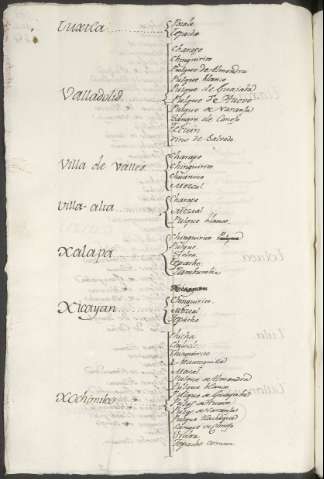 Tuxtla
Tepache
Valladolid
Charape
Chinguirito
Pulque de Almendra
Pulque blanco
Pulque de Guayaba
Pulque de Huevo
Pulque de Naranja
Sangre de Conejo
Tejuin
Vino de Salvado
Villa de Valles
Charape
Chinguirito
Mezcal
Villa-alta
Charape
Mezcal
Pulque blanco
Xalapa
Chinguirito
Pulque
Tepache
Xicayan
Chinguirito
Mezcal
Tepache
Xochimilco
Chicha
Chinguirito
Mantequilla
Mezcal
Pulque de Almendra
Pulque blanco
Pulque de Guayaba
Pulq.e de Huevo
Pulq.e de Naranja
Pulque
Sangre de Conejo
Tepache comun